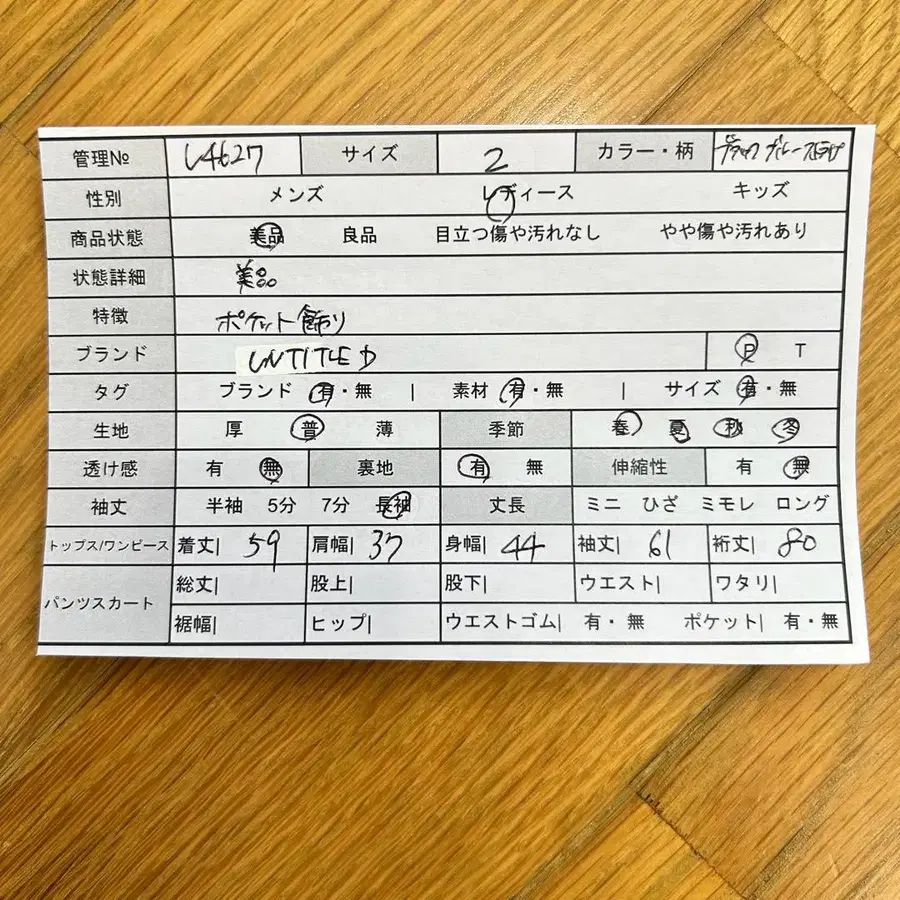 管理№ L4627 サイズ 2 カラー・柄 ブラック グレー
性別 メンズ レディース キッズ
商品状態 美品 良品 目立つ傷や汚れなし やや傷や汚れあり
状態詳細 美品
特徴 ポケット飾り
ブランド UNTITLED P T
タグ ブランド 有・無 | 素材 有・無 | サイズ 有・無
生地 厚 普 薄 季節 春 夏 秋 冬
透け感 有 無 裏地 有 無 伸縮性 有 無
袖丈 半袖 5分 7分 長袖 丈長 ミニ ひざ ミモレ ロング
トップス/ワンピース 着丈| 59 肩幅| 37 身幅| 44 袖丈| 61 裄丈| 80
パンツスカート 総丈| 股上| 股下| ウエスト| ワタリ|
裾幅| ヒップ| ウエストゴム| 有・無 ポケット| 有・無